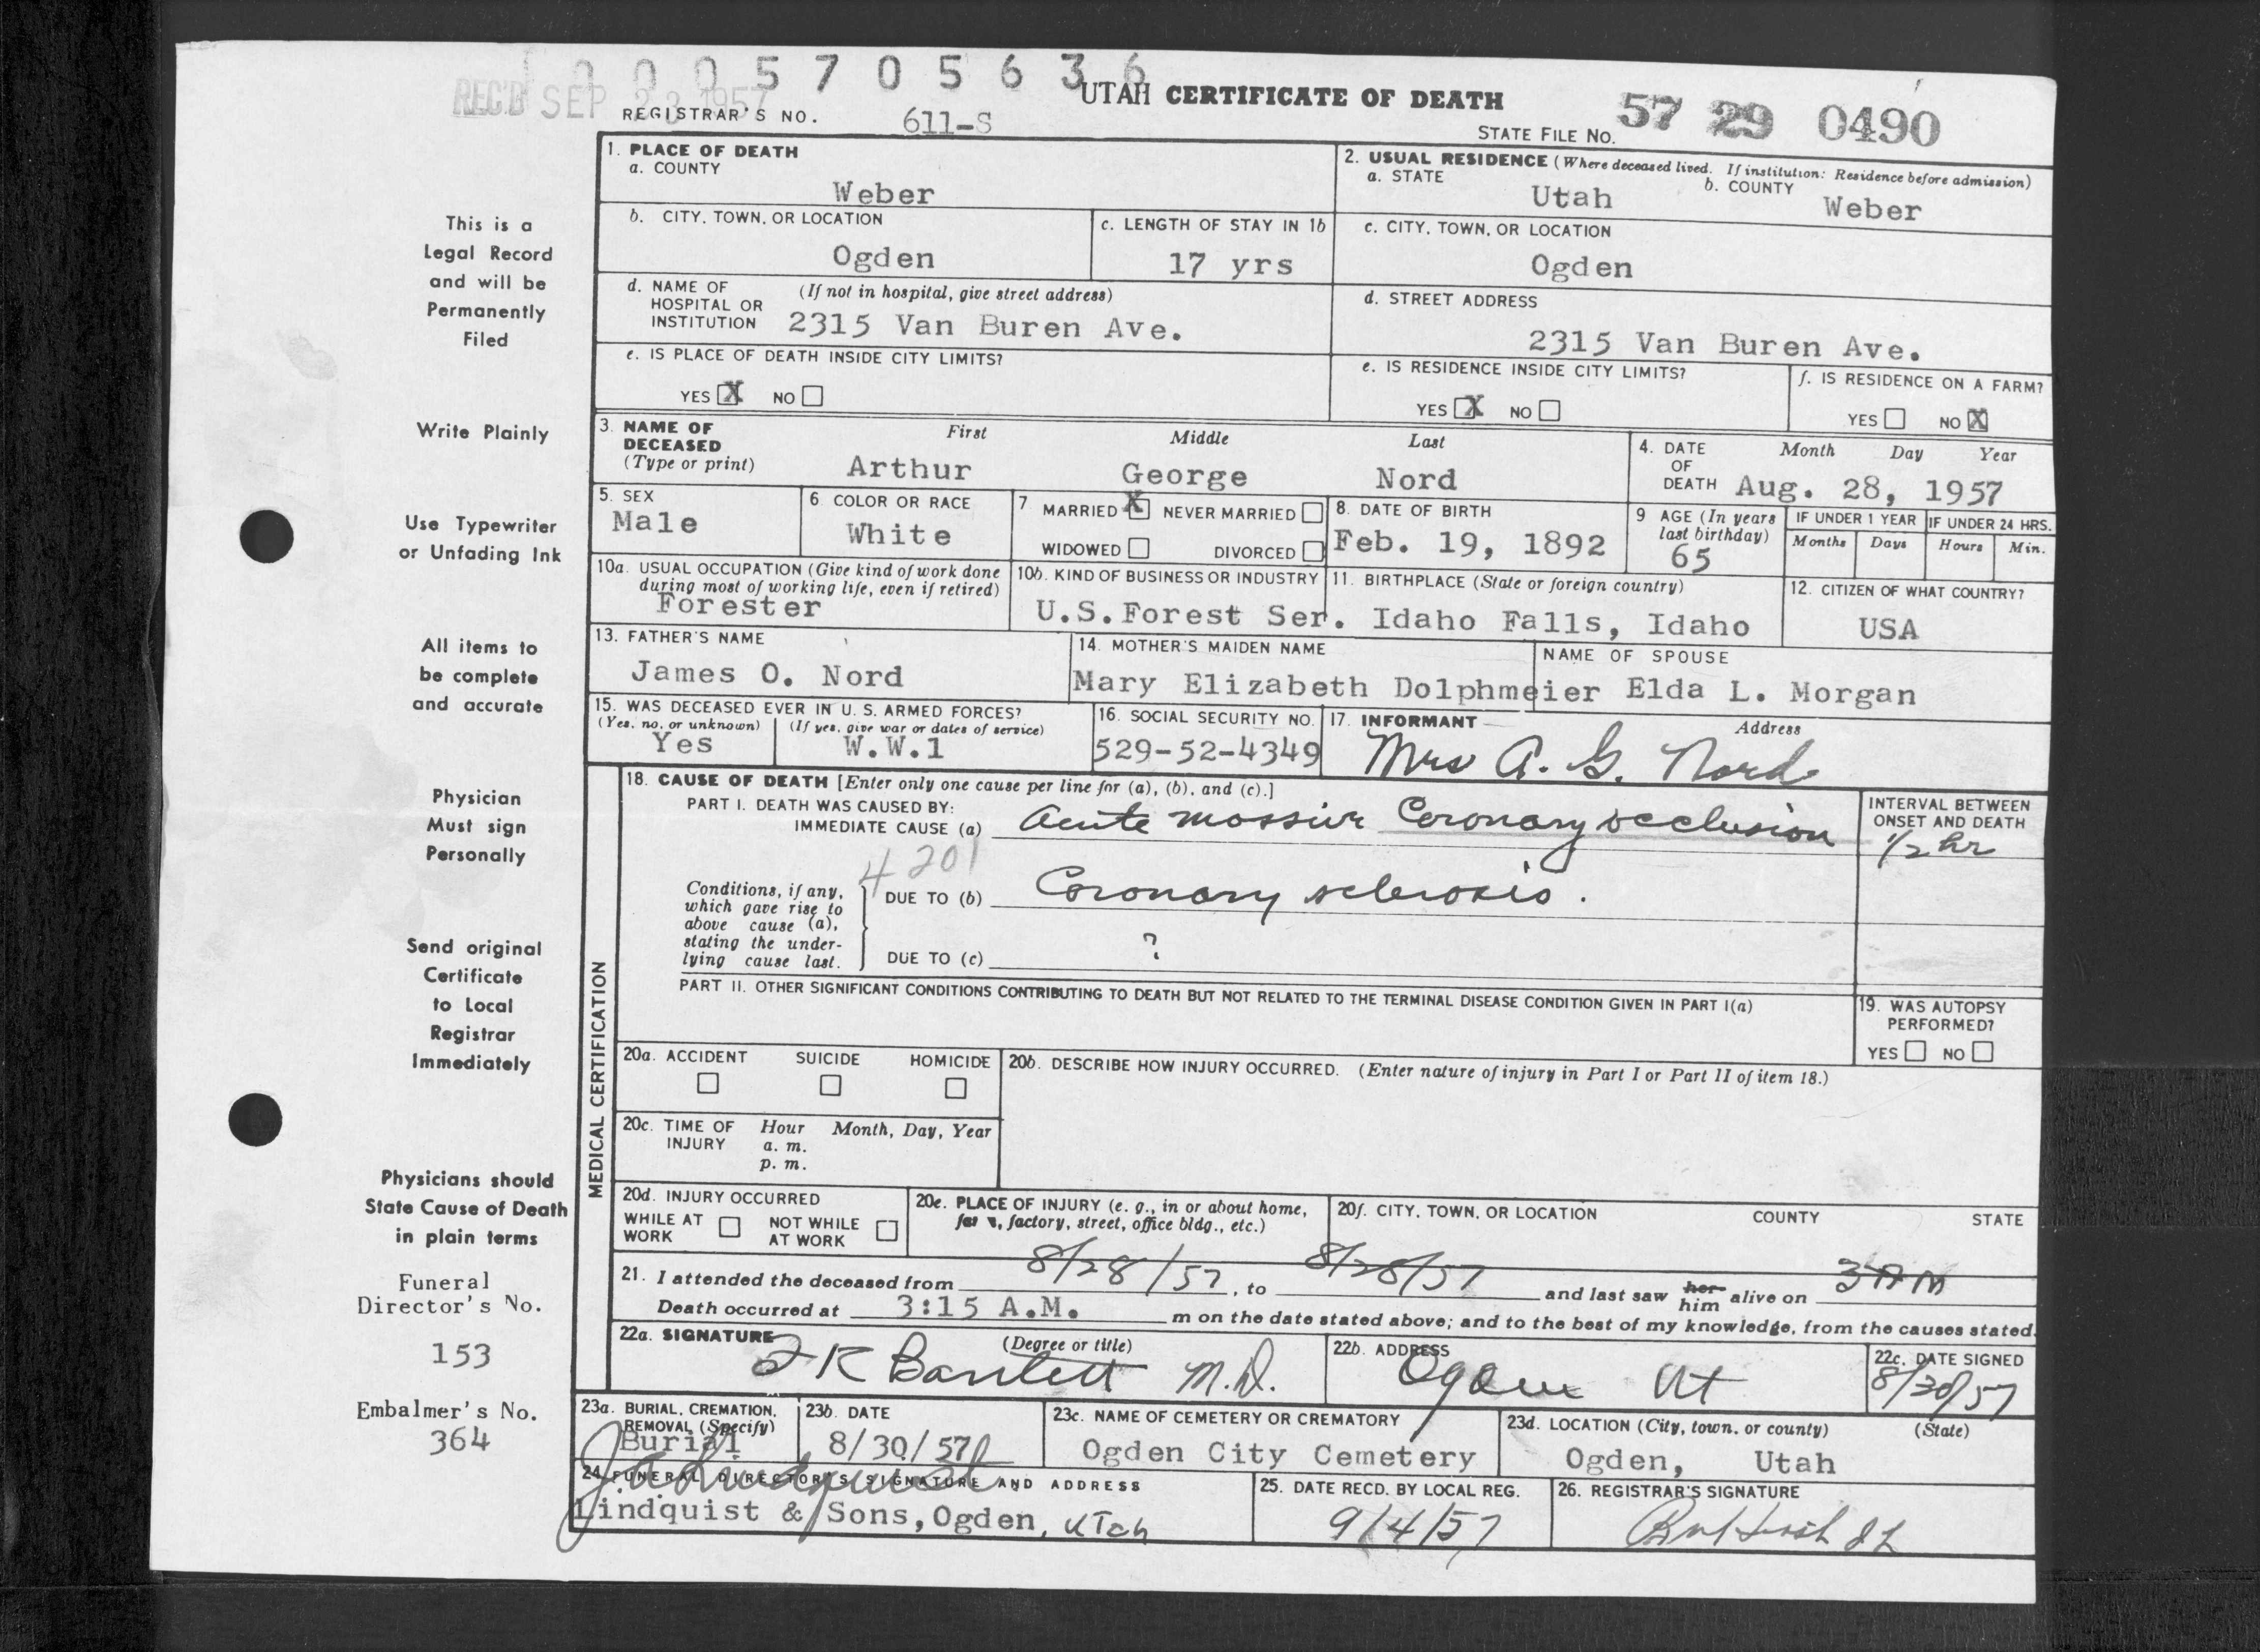 10005705636
REC'D SEP 23 1957
UTAH CERTIFICATE OF DEATH
REGISTRAR'S NO. 611-S
STATE FILE NO. 57 29 0490
1. PLACE OF DEATH
a. COUNTY
Weber
2. USUAL RESIDENCE (Where deceased lived. If institution: Residence before admission)
a. STATE
Utah
b. COUNTY
Weber
b. CITY, TOWN, OR LOCATION
Ogden
c. LENGTH OF STAY IN 1b
17 yrs
c. CITY, TOWN, OR LOCATION
Ogden
d. NAME OF HOSPITAL OR INSTITUTION
(If not in hospital, give street address)
2315 Van Buren Ave.
d. STREET ADDRESS
2315 Van Buren Ave.
e. IS PLACE OF DEATH INSIDE CITY LIMITS?
YES X NO
e. IS RESIDENCE INSIDE CITY LIMITS?
YES X NO
f. IS RESIDENCE ON A FARM?
YES NO X
3. NAME OF DECEASED
(Type or print)
First Middle Last
Arthur George Nord
4. DATE OF DEATH
Month Day Year
Aug. 28, 1957
5. SEX
Male
6. COLOR OR RACE
White
7 MARRIED X NEVER MARRIED
WIDOWED DIVORCED
8. DATE OF BIRTH
Feb. 19, 1892
9 AGE (In years last birthday)
65
IF UNDER 1 YEAR
Months Days
IF UNDER 24 HRS.
Hours Min.
10a. USUAL OCCUPATION (Give kind of work done during most of working life, even if retired)
Forester
10b. KIND OF BUSINESS OR INDUSTRY
U.S.Forest Ser.
11. BIRTHPLACE (State or foreign country)
Idaho Falls, Idaho
12. CITIZEN OF WHAT COUNTRY?
USA
13. FATHER'S NAME
James O. Nord
14. MOTHER'S MAIDEN NAME
Mary Elizabeth Dolphmeier
NAME OF SPOUSE
Elda L. Morgan
15. WAS DECEASED EVER IN U. S. ARMED FORCES?
(Yes, no, or unknown)
Yes
(If yes, give war or dates of service)
W.W.1
16. SOCIAL SECURITY NO.
529-52-4349
17. INFORMANT Address
Mrs A. G. Nord
MEDICAL CERTIFICATION
18. CAUSE OF DEATH [Enter only one cause per line for (a), (b), and (c).]
PART I. DEATH WAS CAUSED BY:
IMMEDIATE CAUSE (a) Acute massive Coronary occlusion
INTERVAL BETWEEN ONSET AND DEATH
1/2 hr
4201
Conditions, if any, which gave rise to above cause (a), stating the underlying cause last.
DUE TO (b) Coronary sclerosis.
DUE TO (c) ?
PART II. OTHER SIGNIFICANT CONDITIONS CONTRIBUTING TO DEATH BUT NOT RELATED TO THE TERMINAL DISEASE CONDITION GIVEN IN PART I(a)
19. WAS AUTOPSY PERFORMED?
YES NO
20a. ACCIDENT SUICIDE HOMICIDE
20b. DESCRIBE HOW INJURY OCCURRED. (Enter nature of injury in Part I or Part II of item 18.)
20c. TIME OF INJURY
Hour Month, Day, Year
a. m.
p. m.
20d. INJURY OCCURRED
WHILE AT WORK NOT WHILE AT WORK
20e. PLACE OF INJURY (e. g., in or about home, factory, street, office bldg., etc.)
20f. CITY, TOWN, OR LOCATION COUNTY STATE
21. I attended the deceased from 8/28/57, to 8/28/57 and last saw her him alive on 3 AM
Death occurred at 3:15 A.M. m on the date stated above; and to the best of my knowledge, from the causes stated.
22a. SIGNATURE (Degree or title)
Bartlett M.D.
22b. ADDRESS
Ogden Ut
22c. DATE SIGNED
8/30/57
23a. BURIAL, CREMATION, REMOVAL (Specify)
Burial
23b. DATE
8/30/57
23c. NAME OF CEMETERY OR CREMATORY
Ogden City Cemetery
23d. LOCATION (City, town, or county) (State)
Ogden, Utah
24. FUNERAL DIRECTOR'S SIGNATURE AND ADDRESS
Lindquist
Lindquist & Sons, Ogden, Utah
25. DATE RECD. BY LOCAL REG.
9/4/57
26. REGISTRAR'S SIGNATURE
This is a
Legal Record
and will be
Permanently
Filed
Write Plainly
Use Typewriter
or Unfading Ink
All items to
be complete
and accurate
Physician
Must sign
Personally
Send original
Certificate
to Local
Registrar
Immediately
Physicians should
State Cause of Death
in plain terms
Funeral
Director's No.
153
Embalmer's No.
364